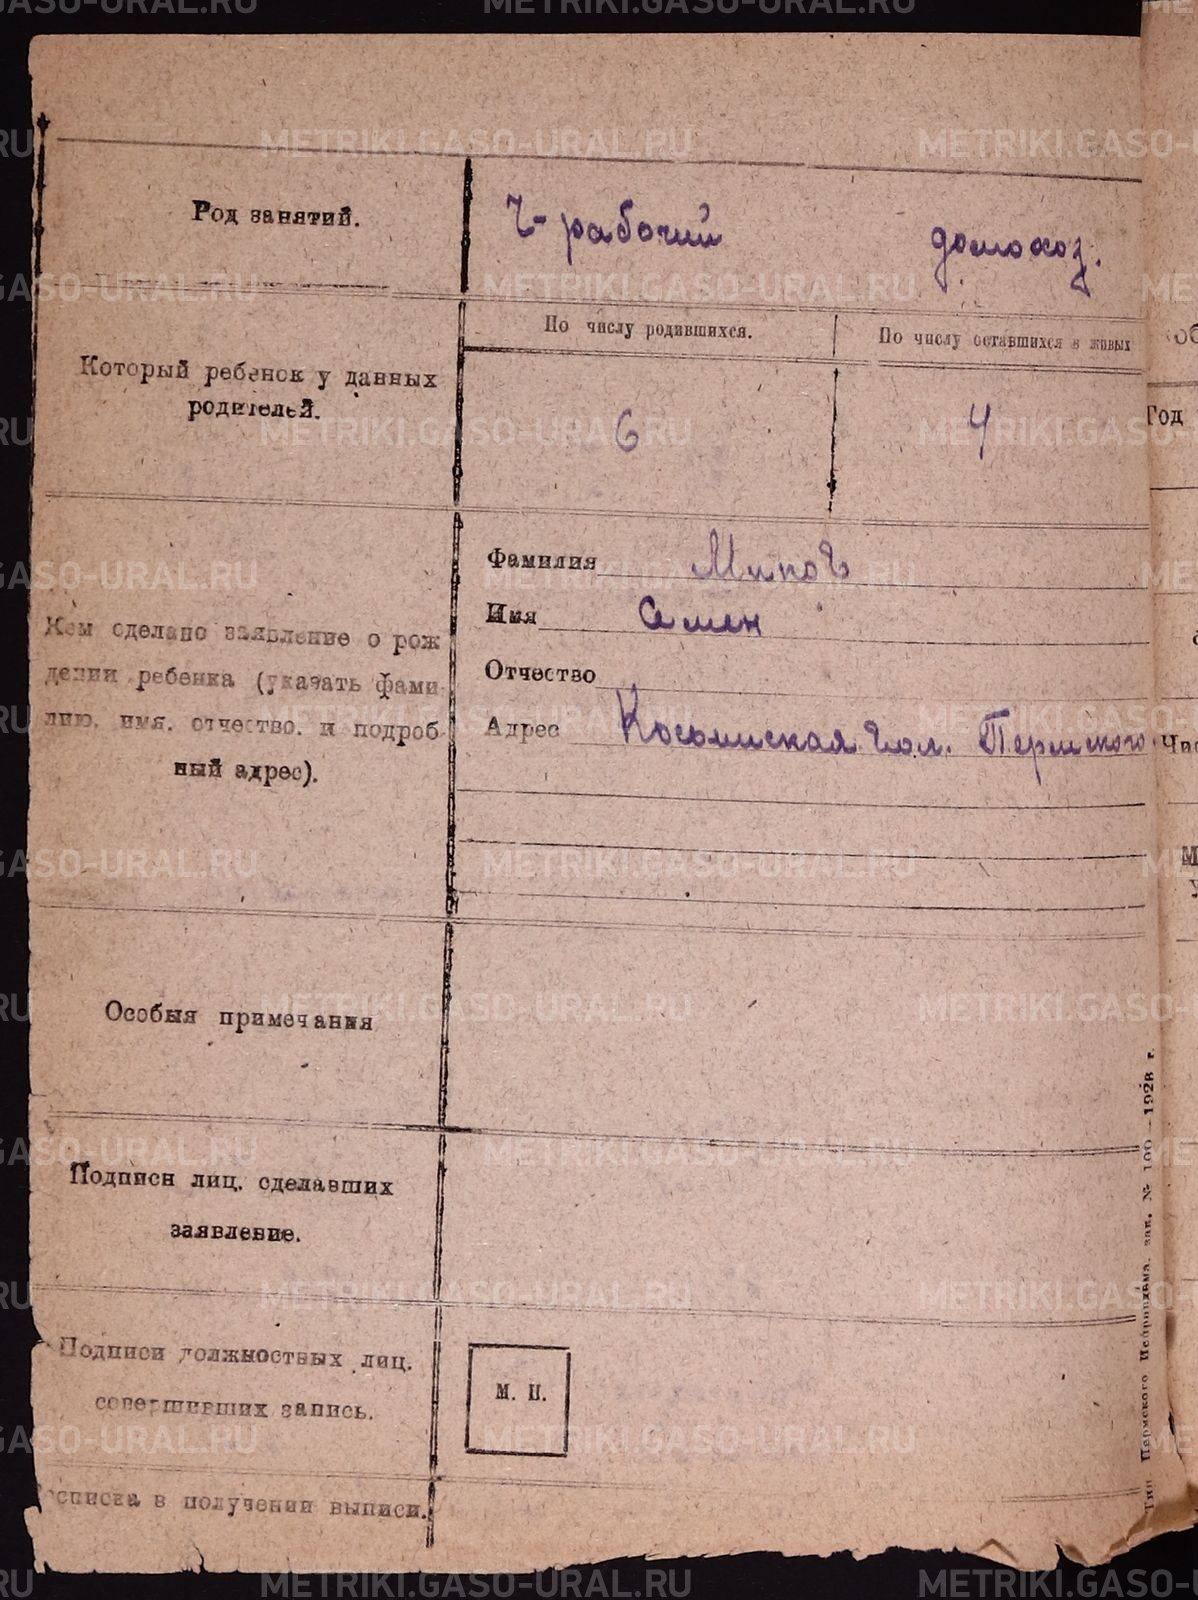 Род занятий.
Ч-рабочий домохоз.
По числу родившихся. По числу оставшихся в живых
Который ребенок у данных
родителей.
6 4
Год
Фамилия Мипов
Имя Семен
Отчество
Адрес
Кем сделано заявление о рож
дении ребенка (указать фами-
лию, имя, отчество, и подроб-
ный адрес).
Особыя примечания
Подписи лиц, сделавших
заявление.
Подписи должностных лиц,
совершивших запись.
М. П.
Расписка в получении выписи.
Тип. Пермского Исправдома, зак. № 100—1928 г.
METRIKI.GASO-URAL.RU